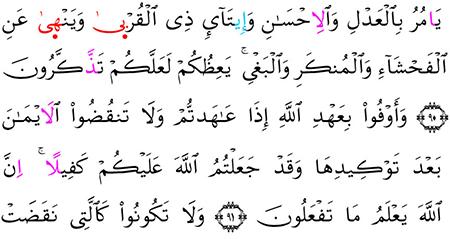 يَامُرُ بِالْعَدْلِ وَالِاحْسَٰنِ وَإِيتَآءِے ذِی الْقُرْب۪يٰ وَيَنْه۪يٰ عَنِ
الْفَحْشَآءِ وَالْمُنكَرِ وَالْبَغْيِۖ يَعِظُكُمْ لَعَلَّكُمْ تَذَّكَّرُونَ
﴿٩٠﴾ وَأَوْفُواْ بِعَهْدِ اللَّهِ إِذَا عَٰهَدتُّمْ وَلَا تَنقُضُواْ الَايْمَٰنَ
بَعْدَ تَوْكِيدِهَا وَقَدْ جَعَلْتُمُ اللَّهَ عَلَيْكُمْ كَفِيلًاۖ اِنَّ
اللَّهَ يَعْلَمُ مَا تَفْعَلُونَ ﴿٩١﴾ وَلَا تَكُونُواْ كَالَّتِی نَقَضَتْ